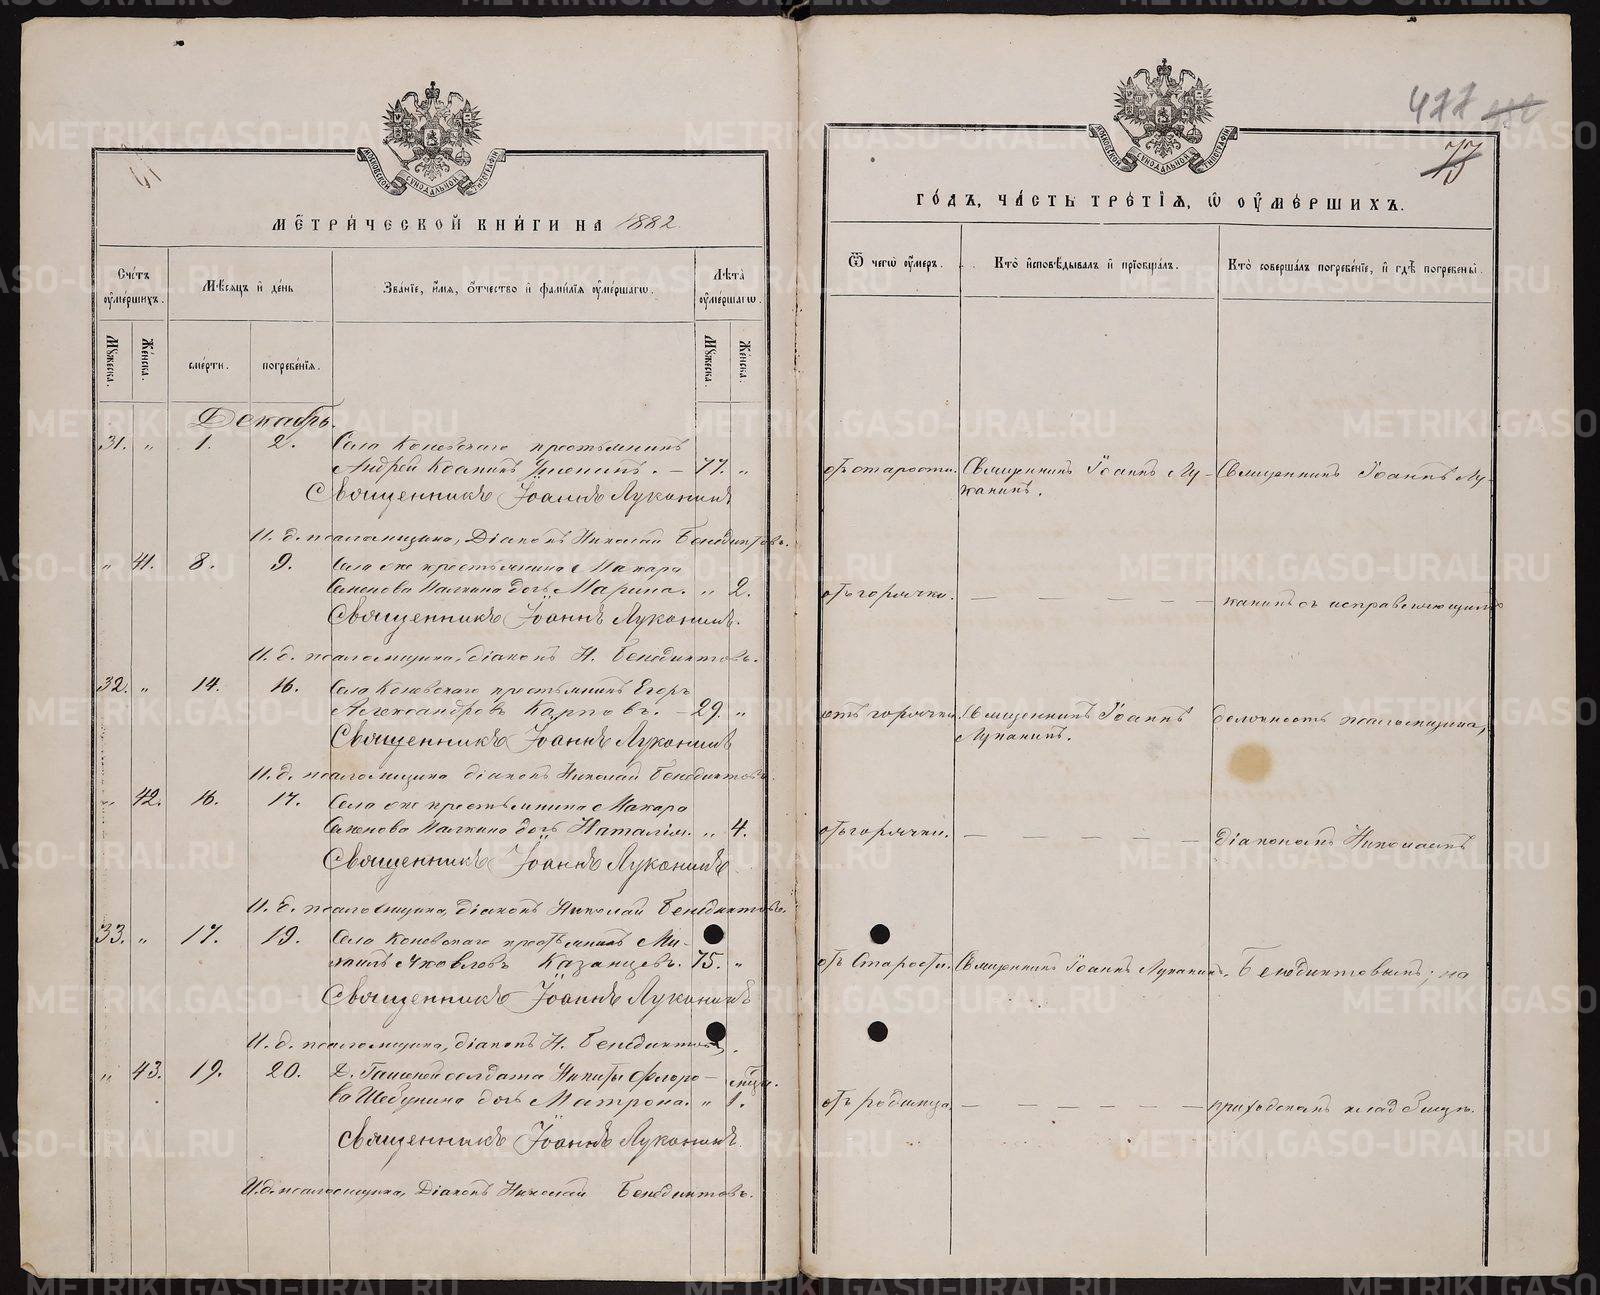 МЕТРИЧЕСКОЙ КНИГИ НА 1882
Счетъ умершихъ.
Мужеска.
Женска.
Мѣсяцъ и день
смерти.
погребенія.
Званіе, имя, отчество и фамилія умершаго.
Лѣта умершаго.
Мужеска.
Женска.
Декабрь.
31. „ 1. 2. Села Коневскаго крестьянинъ
Андрей Іоанновъ – 77. „
Священникъ Іоаннъ Луканинъ
И. д. псаломщика, Діаконъ Николай Бенедиктовъ.
„ 41. 8. 9. Села оже крестьянина Макара
Семенова Палкина дочь Марина. „ 2.
Священникъ Іоаннъ Луканинъ.
И. д. псаломщика, діаконъ Н. Бенедиктовъ.
32. „ 14. 16. Села Коневскаго крестьянинъ Егоръ
Александровъ Карповъ. – 29. „
Священникъ Іоаннъ Луканинъ
И. д. псаломщика діаконъ Николай Бенедиктовъ.
„ 42. 16. 17. Села оже крестьянина Макара
Семенова Палкина дочь Наталія. „ 4.
Священникъ Іоаннъ Луканинъ.
И. д. псаломщика, діаконъ Николай Бенедиктовъ.
33. „ 17. 19. Села Коневскаго крестьянинъ Ми-
хаилъ Яковлевъ Казанцевъ. 75. „
Священникъ Іоаннъ Луканинъ
И. д. псаломщика, діаконъ Н. Бенедиктовъ.
„ 43. 19. 20. солдата Никиты Флоро-
ва дочь Матрона. „ 1.
Священникъ Іоаннъ Луканинъ.
И. д. псаломщика, Діаконъ Николай Бенедиктовъ.
477
73
ГОДЪ, ЧАСТЬ ТРЕТІЯ, Ѡ УМЕРШИХЪ.
Ѿ чего умеръ.
Кто исповѣдывалъ и пріобщалъ.
Кто совершалъ погребеніе, и гдѣ погребены.
отъ старости. Священникъ Іоаннъ Лу- Священникъ Іоаннъ Лу-
канинъ.
отъ горячки. – – – – канинъ съ исправляющимъ
отъ горячки. Священникъ Іоаннъ должность псаломщика,
Луканинъ.
отъ горячки. – – – – діакономъ Николаемъ
отъ Старости. Священникъ Іоаннъ Луканинъ. Бенедиктовымъ; на
отъ родимца – – – – – приходскомъ кладбищѣ.
METRIKI.GASO-URAL.RU